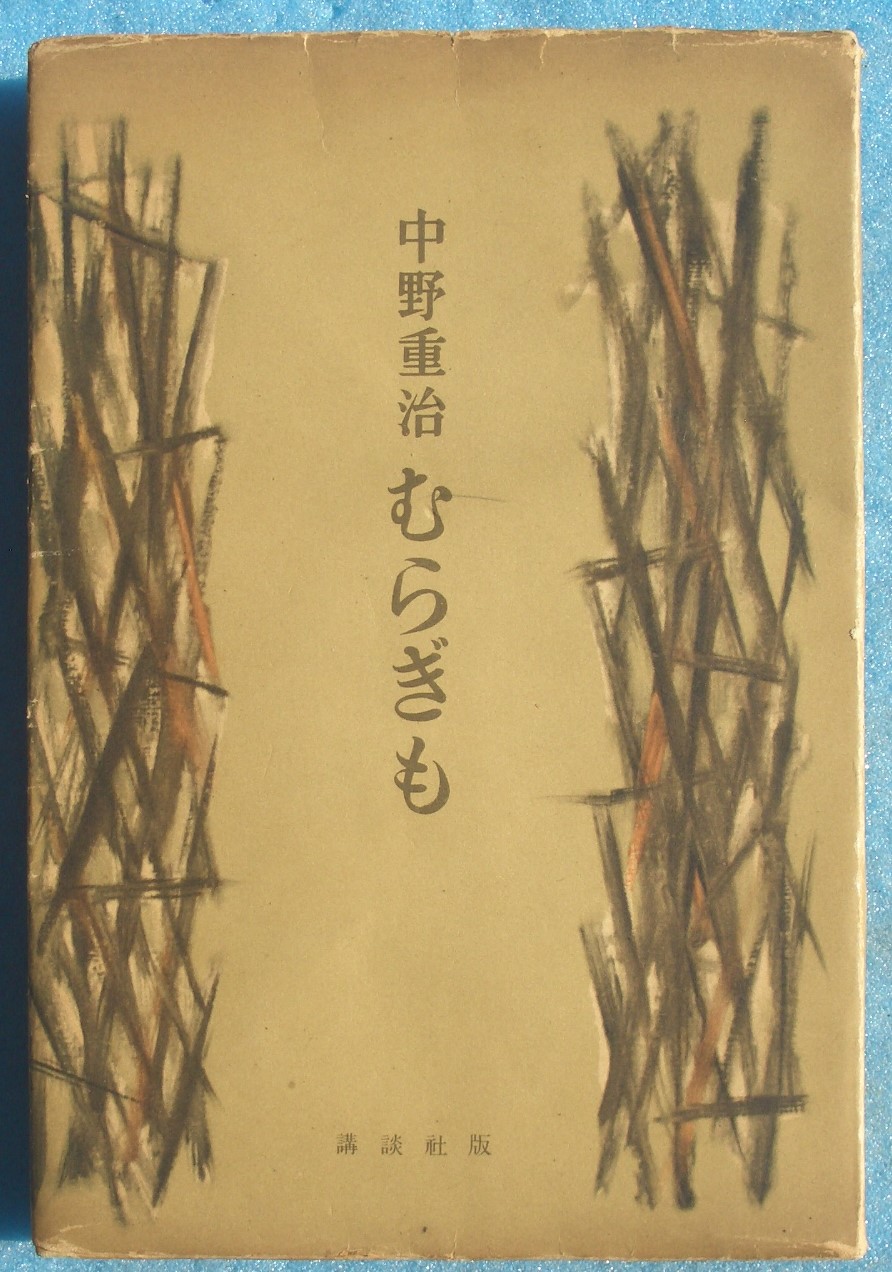 中野重治 むらぎも
講談社版